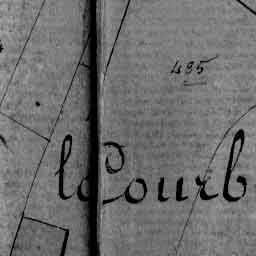 485
la Courb